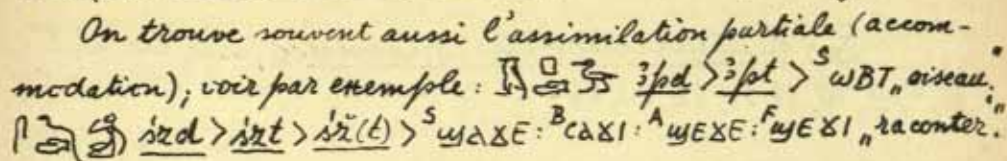 On trouve souvent aussi l'assimilation partiale (accom-
modation), voir par exemple: ꜣpd > ꜣpt > ˢⲱⲃⲧ „oiseau.”
śzd > śzt > śž(t) > ˢϣⲁϫⲉ : ᴮⲥⲁϫⲓ : ᴬϣⲉϫⲉ : ᶠϣⲉϫⲓ „raconter.”